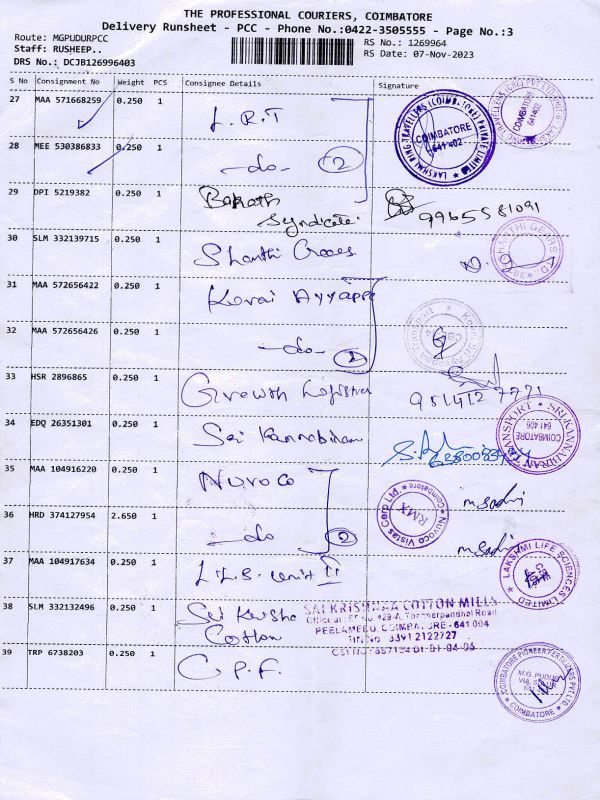 THE PROFESSIONAL COURIERS, COIMBATORE
Delivery Runsheet - PCC - Phone No.:0422-3505555 - Page No.:3
Route: MGPUDURPCC
Staff: RUSHEEP..
DRS No.: DCJB126996403
RS No.: 1269964
RS Date: 07-Nov-2023
S No Consignment No Weight PCS Consignee Details Signature
27 MAA 571668259 0.250 1 L.R.T
LAKSHMI RING TRAVELLERS (COIMBATORE) PRIVATE LIMITED
COIMBATORE
641 402
COIMBATORE
641402
28 MEE 530386833 0.250 1 -do- 2
29 DPI 5219382 0.250 1 Barath
Syndicate 9965581091
30 SLM 332139715 0.250 1 Shanthi Gears
SHANTHI GEARS LTD
CBE
31 MAA 572656422 0.250 1 Kovai Ayyappa
32 MAA 572656426 0.250 1 -do- 2
33 HSR 2896865 0.250 1 Growth Logistics
34 EDQ 26351301 0.250 1 Sri Kannabiran
SRI KANNABIRAN TRANSPORT
COIMBATORE
641 406
35 MAA 104916220 0.250 1 Nuvoco
Nuvoco Vistas Corp Ltd.
Coimbatore
RMX
36 HRD 374127954 2.650 1 -do- 2
37 MAA 104917634 0.250 1 L.L.S. Unit II
LAKSHMI LIFE SCIENCES LIMITED
38 SLM 332132496 0.250 1 Sri Krishna
Cotton
SAI KRISHNAA COTTON MILLS
PEELAMEDU, COIMBATORE - 641 004
39 TRP 6738203 0.250 1 C.P.F.
COIMBATORE PIONEER FERTILIZERS PVT LTD
M.G. PUDUR
COIMBATORE